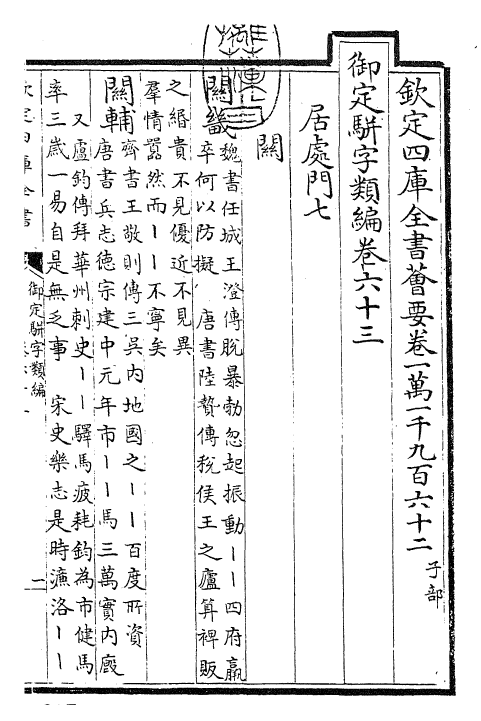 欽定四庫全書薈要卷一萬一千九百六十二 子部
御定駢字類編卷六十三
居處門七
關
關畿 魏書任城王澄傳脫暴勃忽起振動丨丨四府羸
卒何以防擬 唐書陸贄傳稅侯王之廬算裨販
之緡貴不見優近不見異
羣情囂然而丨丨不寧矣
關輔 齊書王敬則傳三吳内地國之丨丨百度所資
唐書兵志徳宗建中元年市丨丨馬三萬實内廄
又盧鈞傳拜華州刺史丨丨驛馬疲耗鈞為市健馬
率三歲一易自是無乏事 宋史樂志是時濂洛丨丨
欽定四庫全書
御定駢字類編